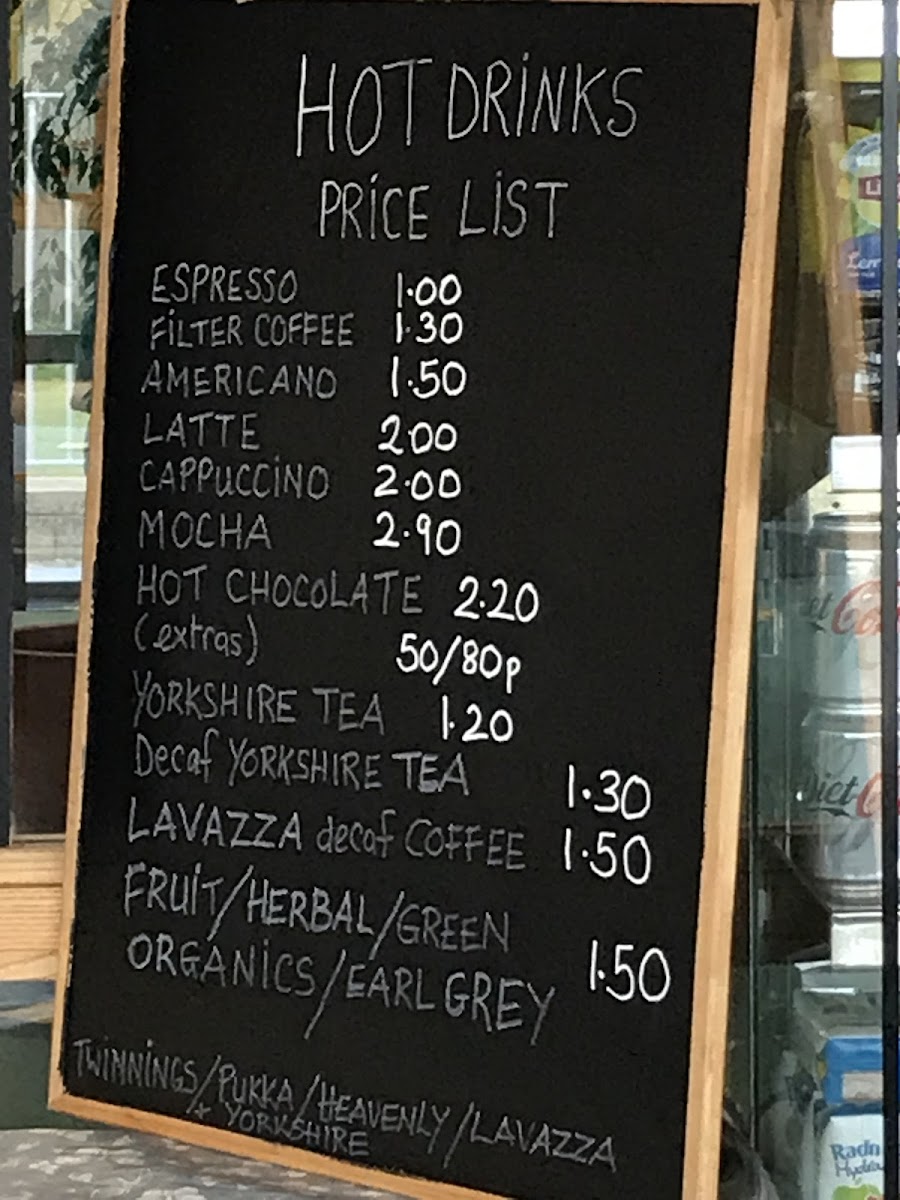 HOT DRINKS
PRICE LIST
ESPRESSO 1.00
FILTER COFFEE 1.30
AMERICANO 1.50
LATTE 2.00
CAPPUCCINO 2.00
MOCHA 2.90
HOT CHOCOLATE 2.20
(extras) 50/80p
YORKSHIRE TEA 1.20
Decaf YORKSHIRE TEA 1.30
LAVAZZA decaf COFFEE 1.50
FRUIT/HERBAL/GREEN
ORGANICS/EARL GREY 1.50
TWINNINGS/PUKKA/HEAVENLY/LAVAZZA
+ YORKSHIRE
Diet